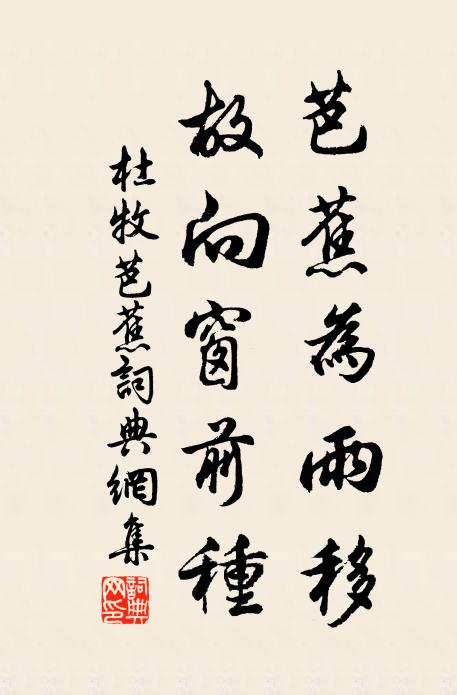 芭蕉為雨移
故向窗前種
杜牧芭蕉詞典網集
詞典網印